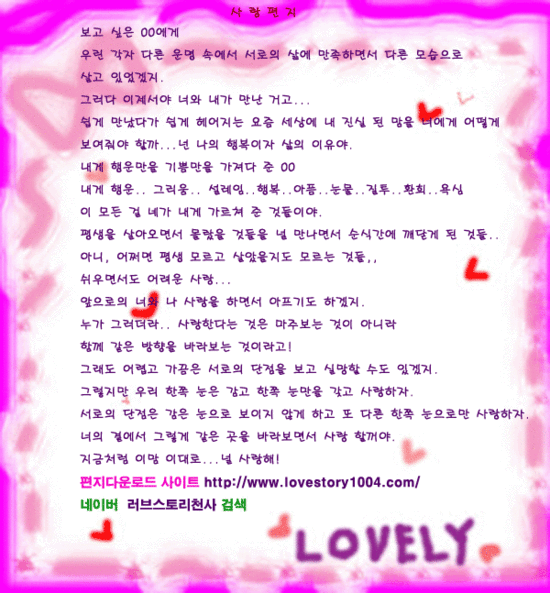 사 랑 편 지
보고 싶은 00에게
우린 각자 다른 운명 속에서 서로의 삶에 만족하면서 다른 모습으로
살고 있었겠지.
그러다 이제서야 너와 내가 만난 거고...
쉽게 만났다가 쉽게 헤어지는 요즘 세상에 내 진실 된 맘을 너에게 어떻게
보여줘야 할까...넌 나의 행복이자 삶의 이유야.
내게 행운만을 기쁨만을 가져다 준 00
내게 행운.. 그리움.. 설레임..행복..아픔..눈물..질투..환희..욕심
이 모든 걸 네가 내게 가르쳐 준 것들이야.
평생을 살아오면서 몰랐을 것들을 널 만나면서 순식간에 깨닫게 된 것들..
아니, 어쩌면 평생 모르고 살았을지도 모르는 것들,,
쉬우면서도 어려운 사랑...
앞으로의 너와 나 사랑을 하면서 아프기도 하겠지.
누가 그러더라.. 사랑한다는 것은 마주보는 것이 아니라
함께 같은 방향을 바라보는 것이라고!
그래도 어렵고 가끔은 서로의 단점을 보고 실망할 수도 있겠지.
그렇지만 우리 한쪽 눈은 감고 한쪽 눈만을 갖고 사랑하자.
서로의 단점은 감은 눈으로 보이지 않게 하고 또 다른 한쪽 눈으로만 사랑하자.
너의 곁에서 그렇게 같은 곳을 바라보면서 사랑 할꺼야.
지금처럼 이맘 이대로...널 사랑해!
편지다운로드 사이트 http://www.lovestory1004.com/
네이버 러브스토리천사 검색
LOVELY